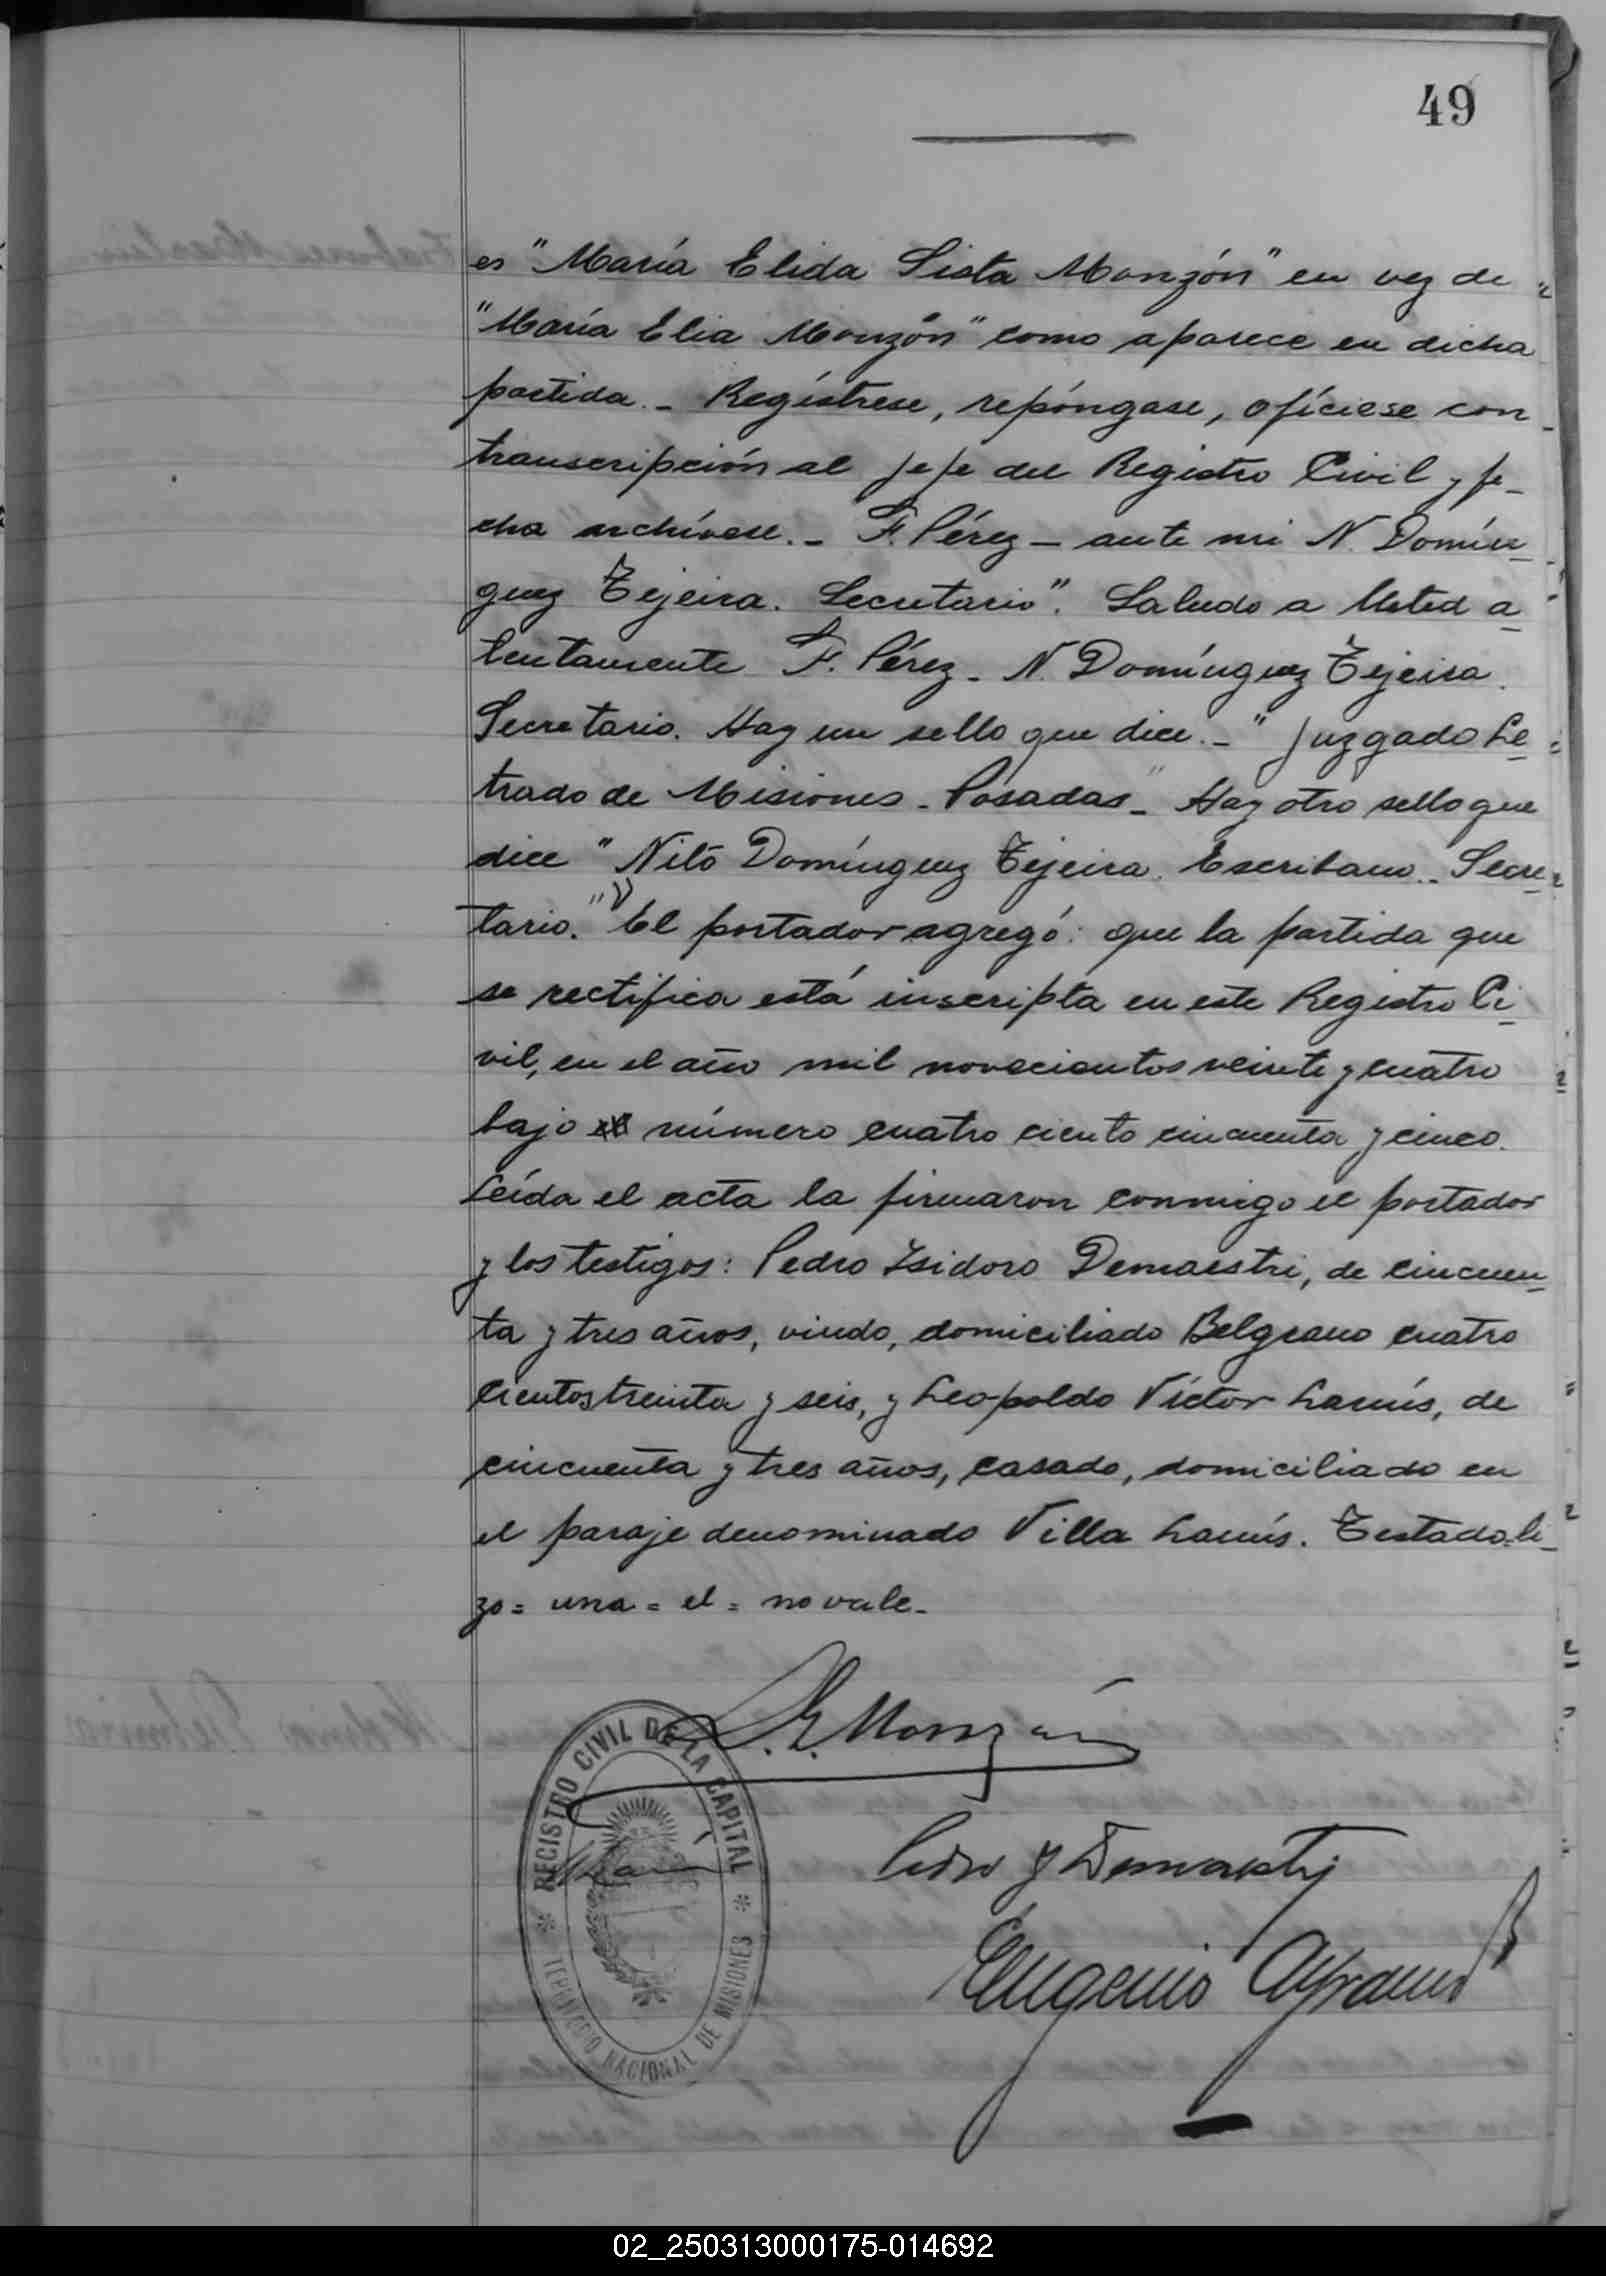 49
es "María Elida Sista Monzón" en vez de
"María Elia Monzón" como aparece en dicha
partida.- Regístrese, repóngase, ofíciese con
transcripción al Jefe del Registro Civil y fe-
cha archívese.- F. Pérez - ante mi N. Domín-
guez Tejeira. Secretario". Saludo a Usted a
tentamente F. Pérez - N. Domínguez Tejeira.
Secretario. Hay un sello que dice.- "Juzgado Le
trado de Misiones - Posadas" - Hay otro sello que
dice "Nilo Domínguez Tejeira. Escribano - Secre-
tario." El portador agregó: que la partida que
se rectifica está inscripta en este Registro Ci
vil, en el año mil novecientos veinte y cuatro
bajo el número cuatro ciento cincuenta y cinco.
Leída el acta la firmaron conmigo el portador
y los testigos: Pedro Isidoro Demaestri, de cincuen
ta y tres años, viudo, domiciliado Belgrano cuatro
cientos treinta y seis, y Leopoldo Víctor Lanús, de
cincuenta y tres años, casado, domiciliado en
el paraje denominado Villa Lanús. Testado = li-
zo = una = el = no vale -
Monzón
REGISTRO CIVIL DE LA CAPITAL
TERRITORIO NACIONAL DE MISIONES
Pedro Y Demaestri
Eugenio
02_250313000175-014692